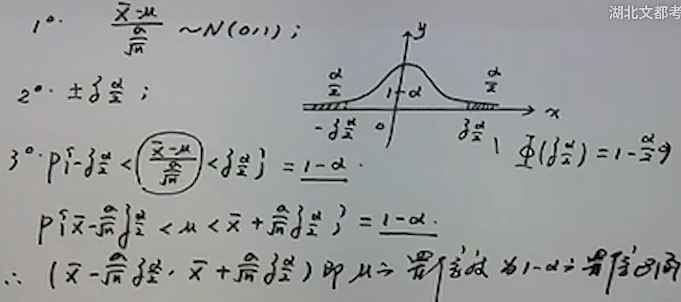 湖北文都考
1°. (x̄-μ)/(σ/√n) ~N(0,1);
2°. ±z_{α/2};
y
α/2 1-α α/2
-z_{α/2} 0 z_{α/2} x
3°. P{-z_{α/2} < (x̄-μ)/(σ/√n) < z_{α/2}} = 1-α.
Φ(z_{α/2}) = 1-α/2
P{x̄-σ/√n z_{α/2} < μ < x̄+σ/√n z_{α/2}} = 1-α.
∴ (x̄-σ/√n z_{α/2}, x̄+σ/√n z_{α/2}) 即 μ 之 置信度 为 1-α 之 置信区间